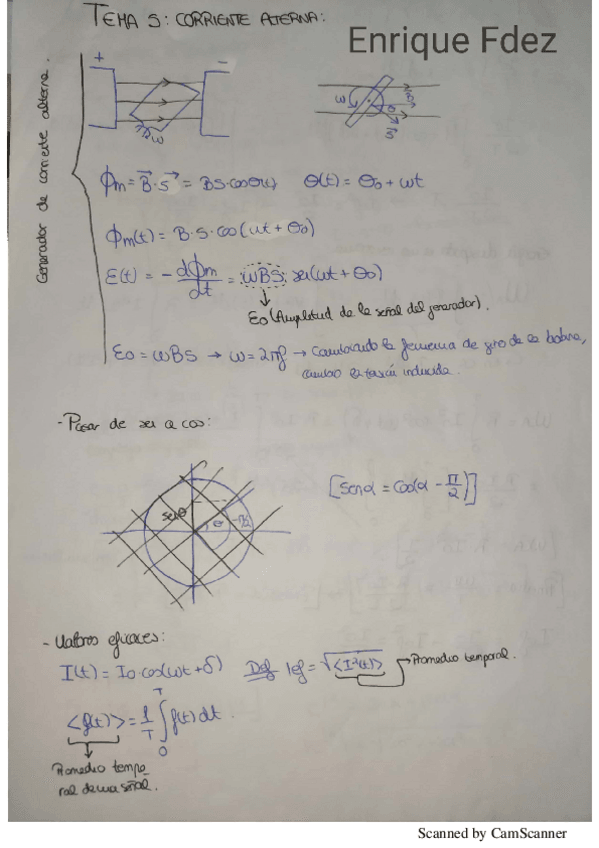 TEMA 5: CORRIENTE ALTERNA:
Enrique Fdez
Generador de corriente alterna.
+ -
ω
ω B θ S
ϕm = B·S = BS·cosθ(t) θ(t) = θo + ωt
ϕm(t) = B·S·cos(ωt + θo)
E(t) = - dϕm/dt = ωBS · sen(ωt + θo)
Eo (Amplitud de la señal del generador).
Eo = ωBS → ω = 2πf → Cambiando la frecuencia de giro de la bobina,
cambio la tensión inducida.
- Pasar de sen a cos:
[senα = cos(α - π/2)]
senθ θ -π/2
- Valores eficaces:
I(t) = Io cos(ωt + δ) Def Ief = √<I²(t)> Promedio temporal.
<f(t)> = 1/T ∫₀ᵀ f(t) dt.
Promedio tempo
ral de una señal.
Scanned by CamScanner